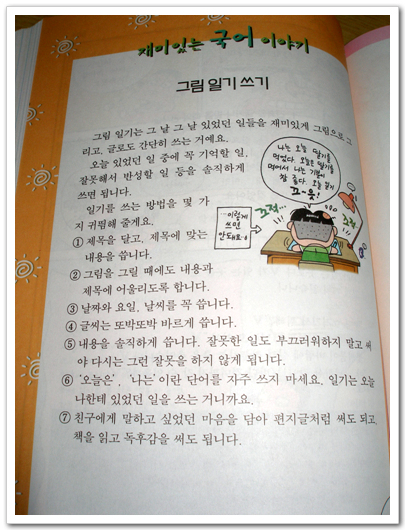 재미있는 국어 이야기
그림 일기 쓰기
그림 일기는 그 날 그 날 있었던 일들을 재미있게 그림으로 그
리고, 글로도 간단히 쓰는 거예요.
오늘 있었던 일 중에 꼭 기억할 일,
잘못해서 반성할 일 등을 솔직하게
쓰면 됩니다.
일기를 쓰는 방법을 몇 가
지 귀띔해 줄게요.
① 제목을 달고, 제목에 맞는
내용을 씁니다.
② 그림을 그릴 때에도 내용과
제목에 어울리도록 합니다.
③ 날짜와 요일, 날씨를 꼭 씁니다.
④ 글씨는 또박또박 바르게 씁니다.
⑤ 내용을 솔직하게 씁니다. 잘못한 일도 부끄러워하지 말고 써
야 다시는 그런 잘못을 하지 않게 됩니다.
⑥ '오늘은', '나는' 이란 단어를 자주 쓰지 마세요. 일기는 오늘
나한테 있었던 일을 쓰는 거니까요.
⑦ 친구에게 말하고 싶었던 마음을 담아 편지글처럼 써도 되고,
책을 읽고 독후감을 써도 됩니다.
나는 오늘 딸기를
먹었다. 오늘은 딸기를
먹어서 나는 기분이
참 좋다. 오늘 일기
끄~읏!
…이렇게
쓰면
안돼요~
끄적…